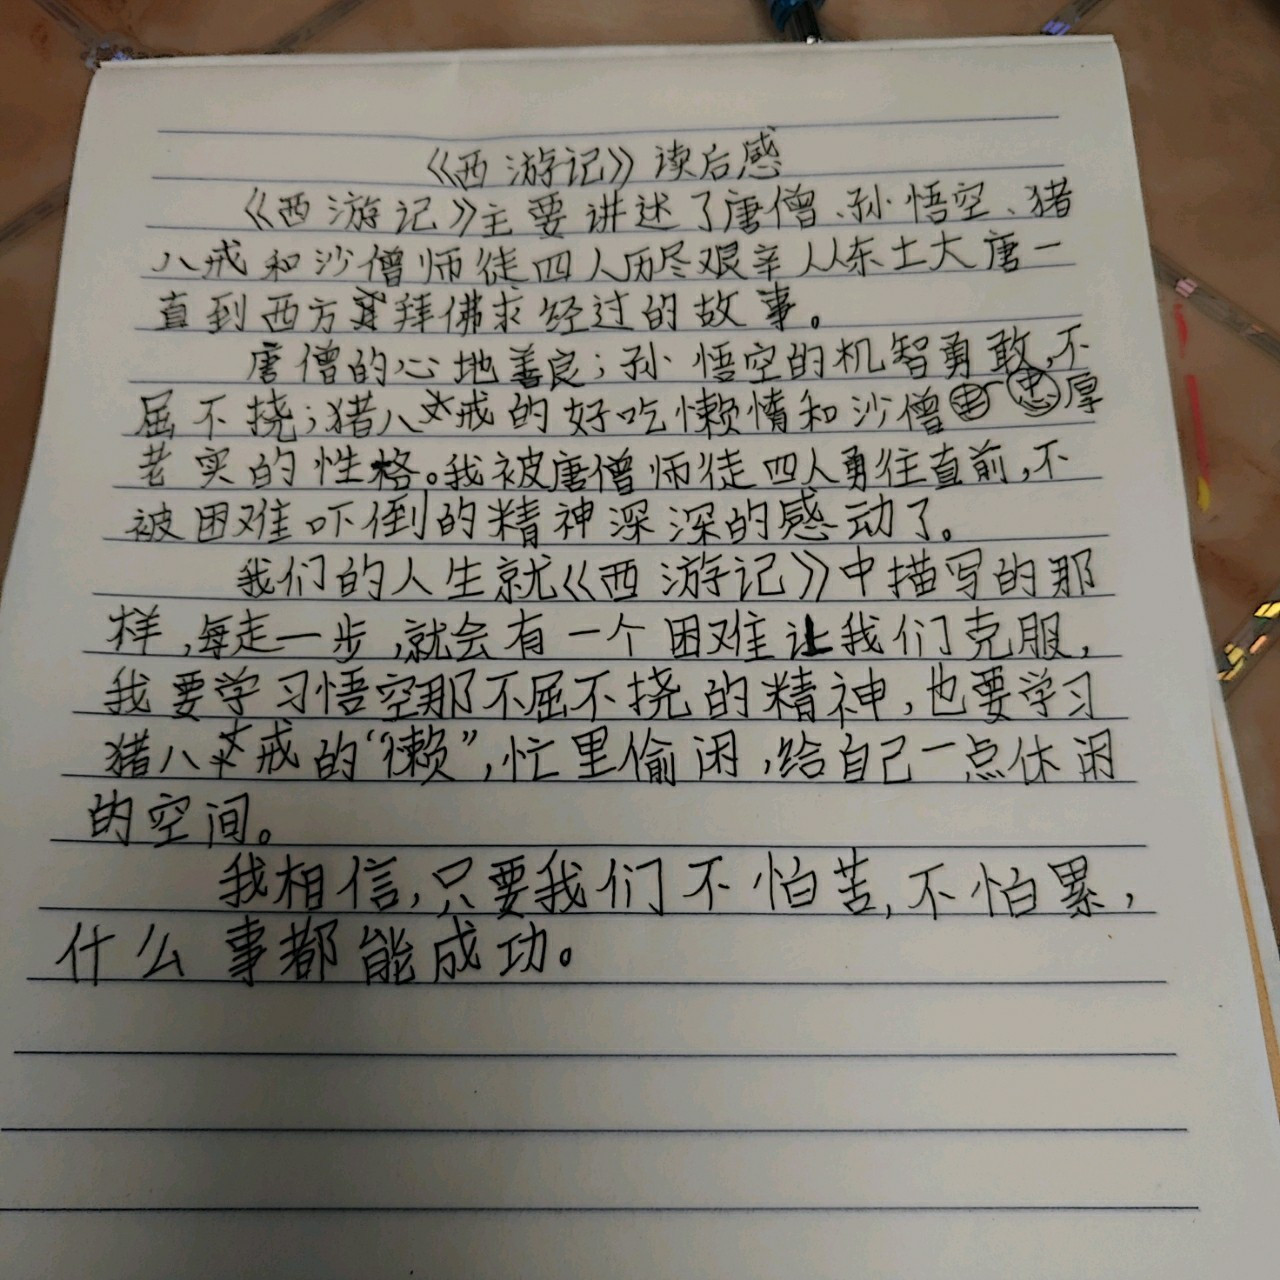 《西游记》读后感
《西游记》主要讲述了唐僧、孙悟空、猪
八戒和沙僧师徒四人历尽艰辛从东土大唐一
直到西方拜佛求经过的故事。
唐僧的心地善良;孙悟空的机智勇敢,不
屈不挠;猪八戒的好吃懒惰和沙僧忠厚
老实的性格。我被唐僧师徒四人勇往直前,不
被困难吓倒的精神深深的感动了。
我们的人生就《西游记》中描写的那
样,每走一步,就会有一个困难让我们克服,
我要学习悟空那不屈不挠的精神,也要学习
猪八戒的“懒”,忙里偷闲,给自己一点休闲
的空间。
我相信,只要我们不怕苦,不怕累,
什么事都能成功。